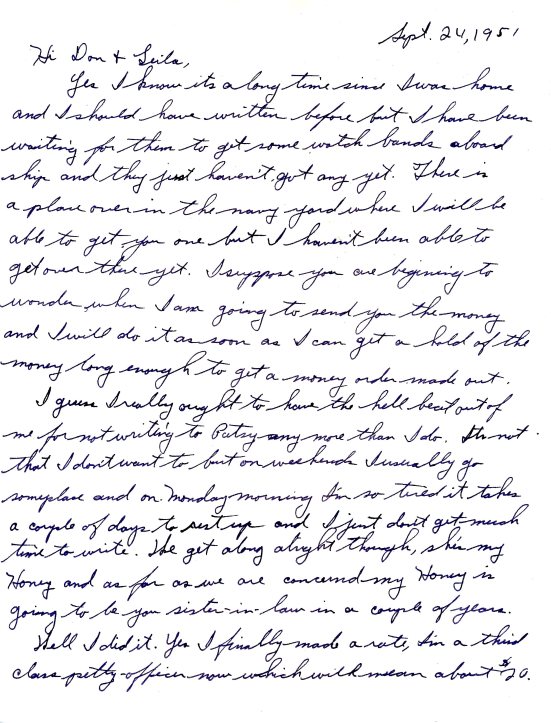 Sept. 24, 1951
Hi Don & Leila,
Yes I know its a long time since I was home
and I should have written before but I have been
waiting for them to get some watch bands aboard
ship and they just haven't got any yet. There is
a place over in the navy yard where I will be
able to get you one but I haven't been able to
get over there yet. I suppose you are begining to
wonder when I am going to send you the money
and I will do it as soon as I can get a hold of the
money long enough to get a money order made out.
I guess I really ought to have the hell beat out of
me for not writing to Patsy any more than I do. Its not
that I don't want to but on weekends I usually go
someplace and on Monday morning I'm so tired it takes
a couple of days to rest up and I just don't get much
time to write. We get along alright though, she's my
Honey and as far as we are concernd my Honey is
going to be you sister-in-law in a couple of years.
Well I did it. Yes I finally made a rate, I'm a third
class petty-officer now which will mean about $20.